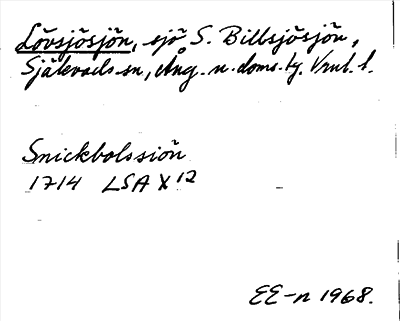 Lövsjösjön, sjö S. Billsjösjön,
Själevads sn, Ång. n. doms.
Snickbolssiön
1714 LSA X 12
EE-n 1968.